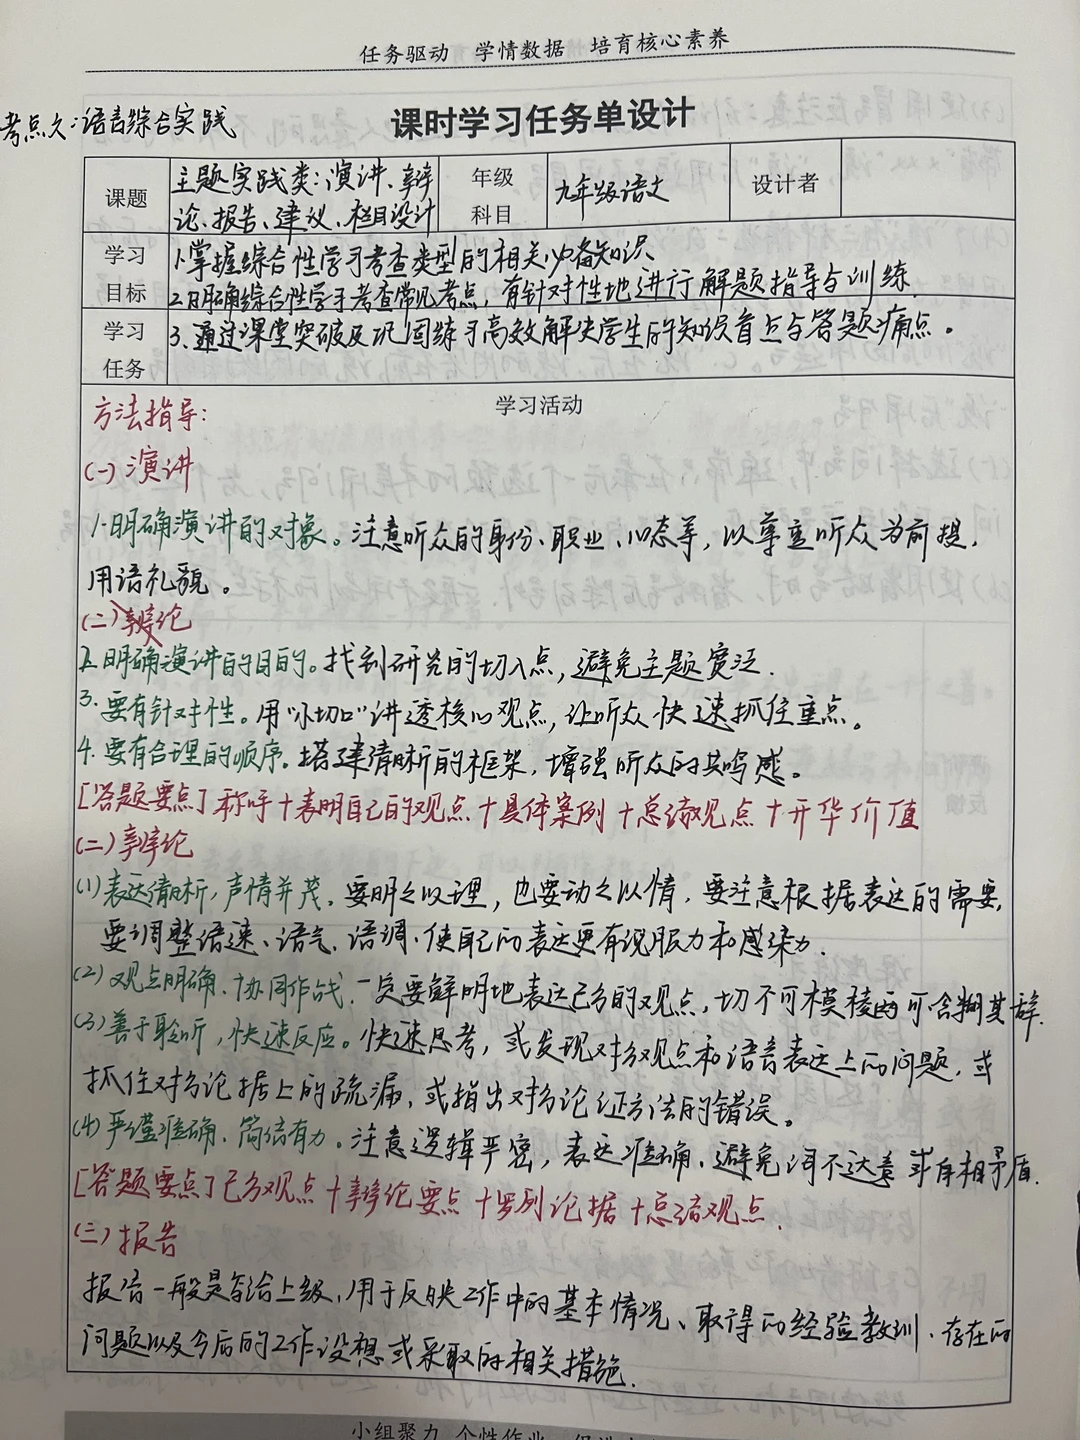 任务驱动 学情数据 培育核心素养
课时学习任务单设计
考点久:语言综合实践
课题
主题实践类:演讲、辩
论、报告、建议、栏目设计
年级
科目
九年级语文
设计者
学习
目标
1.掌握综合性学习考查类型的相关必备知识
2.明确综合性学习考查常见考点,有针对性地进行解题指导与训练.
学习
任务
3.通过课堂突破及巩固练习高效解决学生的知识盲点与答题痛点。
学习活动
方法指导:
(一)演讲
1.明确演讲的对象。注意听众的身份、职业、心态等,以尊重听众为前提,
用语礼貌。
(二)辩论
2.明确演讲的目的。找到研究的切入点,避免主题宽泛.
3.要有针对性。用“小切口”讲透核心观点,让听众快速抓住重点。
4.要有合理的顺序.搭建清晰的框架,增强听众的共鸣感。
[答题要点]称呼+表明自己的观点+具体案例+总结观点+升华价值
(二)辩论
(1)表达清晰,声情并茂.要明之以理,也要动之以情,要注意根据表达的需要,
要调整语速、语气、语调,使自己的表达更有说服力和感染力.
(2)观点明确、协同作战.一定要鲜明地表达己方的观点,切不可模棱两可含糊其辞.
(3)善于聆听,快速反应。快速思考,或发现对方观点和语言表达上的问题,或
抓住对方论据上的疏漏,或指出对方论证方法的错误。
(4)严谨准确、简洁有力。注意逻辑严密,表达准确,避免词不达意或自相矛盾.
[答题要点]己方观点+辩论要点+罗列论据+总结观点.
(三)报告
报告一般是写给上级,用于反映工作中的基本情况、取得的经验教训、存在的
问题以及今后的工作设想或采取的相关措施.
小组聚力 个性作业